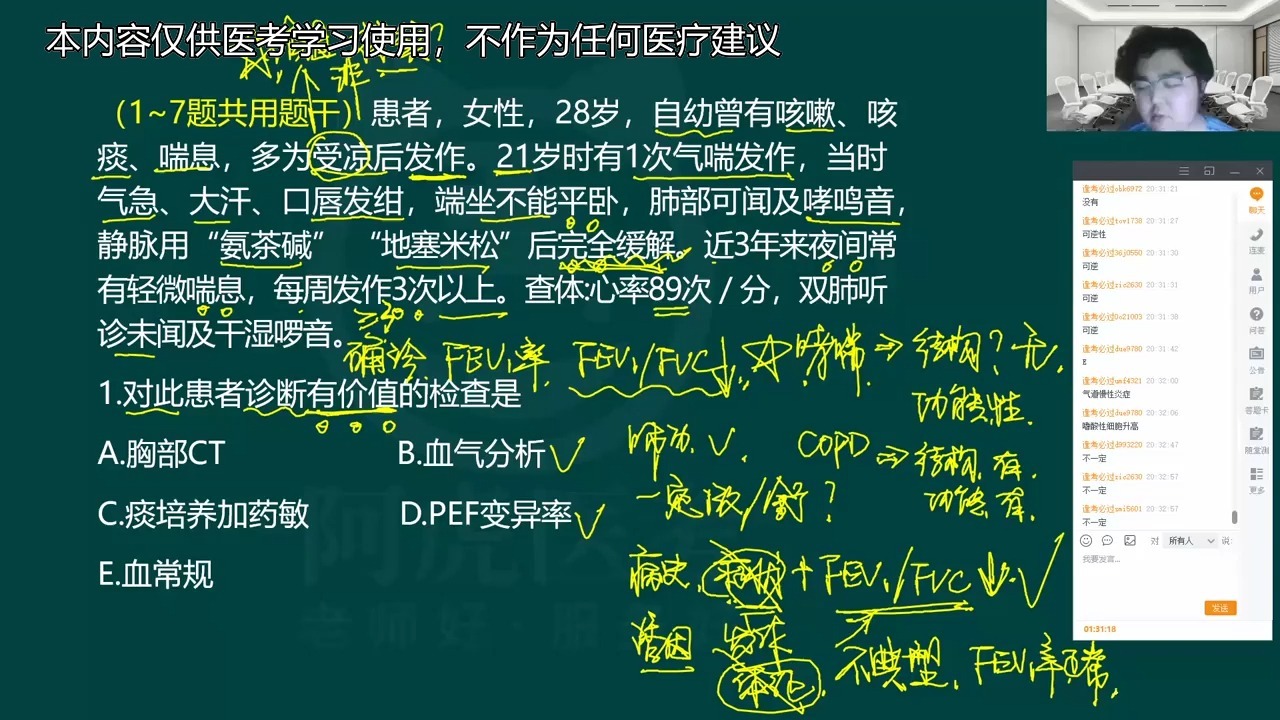 本内容仅供医考学习使用，不作为任何医疗建议
（1~7题共用题干）患者，女性，28岁，自幼曾有咳嗽、咳
痰、喘息，多为受凉后发作。21岁时有1次气喘发作，当时
气急、大汗、口唇发绀，端坐不能平卧，肺部可闻及哮鸣音，
静脉用“氨茶碱”“地塞米松”后完全缓解。近3年来夜间常
有轻微喘息，每周发作3次以上。查体:心率89次／分，双肺听
诊未闻及干湿啰音。
确诊 FEV₁率. FEV₁/FVC↓
结构? 无.
功能性.
1.对此患者诊断有价值的检查是
A.胸部CT
B.血气分析
C.痰培养加药敏
D.PEF变异率
E.血常规
COPD
结构 有.
功能 有.
病史
+ FEV₁/FVC
诱因
不典型. FEV₁率正常.
逢考必过obk6972 20:31:21
没有
逢考必过tew1738 20:31:27
可逆性
逢考必过36j0550 20:31:30
可逆
逢考必过ric2630 20:31:31
可逆
逢考必过0o21003 20:31:38
可逆
逢考必过dua9780 20:31:42
E
逢考必过umf4321 20:32:00
气道慢性炎症
逢考必过dua9780 20:32:06
嗜酸性细胞升高
逢考必过d993220 20:32:47
不一定
逢考必过ric2630 20:32:57
不一定
逢考必过umi5601 20:32:57
不一定
对 所有人 说:
我要发言...
发送
01:31:18
聊天
连麦
用户
问答
公告
答题卡
随堂测
更多